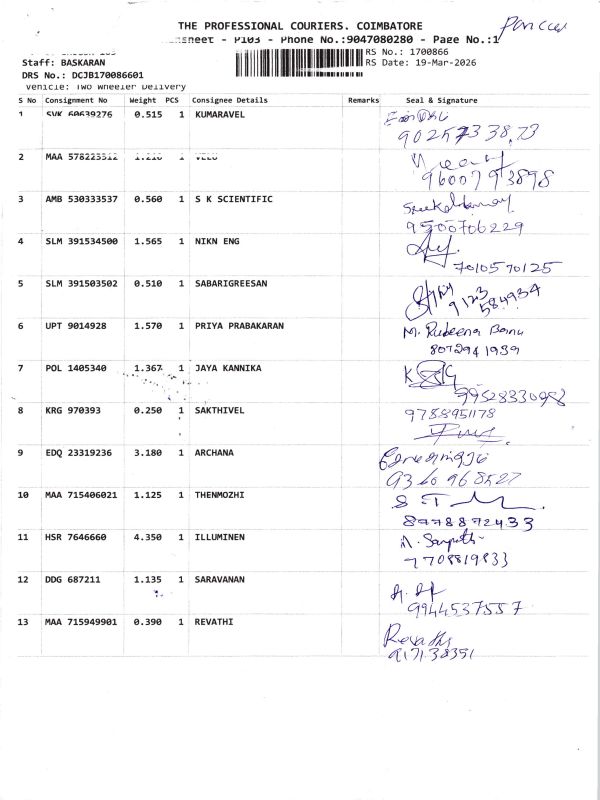 THE PROFESSIONAL COURIERS. COIMBATORE
P103 - Phone No.:9047080280 - Page No.:1
RS No.: 1700866
Staff: BASKARAN RS Date: 19-Mar-2026
DRS No.: DCJB170086601
Vehicle: Two Wheeler Delivery
S No Consignment No Weight PCS Consignee Details Remarks Seal & Signature
1 SVK 60639276 0.515 1 KUMARAVEL
2 MAA 1
9600793898
3 AMB 530333537 0.560 1 S K SCIENTIFIC
9500706229
4 SLM 391534500 1.565 1 NIKN ENG
7010570125
5 SLM 391503502 0.510 1 SABARIGREESAN
9123
584934
6 UPT 9014928 1.570 1 PRIYA PRABAKARAN M. Rubeena Banu
8072941939
7 POL 1405340 1.367 1 JAYA KANNIKA
8 KRG 970393 0.250 1 SAKTHIVEL 9788951178
9 EDQ 23319236 3.180 1 ARCHANA
10 MAA 715406021 1.125 1 THENMOZHI
8978872433
11 HSR 7646660 4.350 1 ILLUMINEN
7708819833
12 DDG 687211 1.135 1 SARAVANAN
9944537557
13 MAA 715949901 0.390 1 REVATHI Revathy